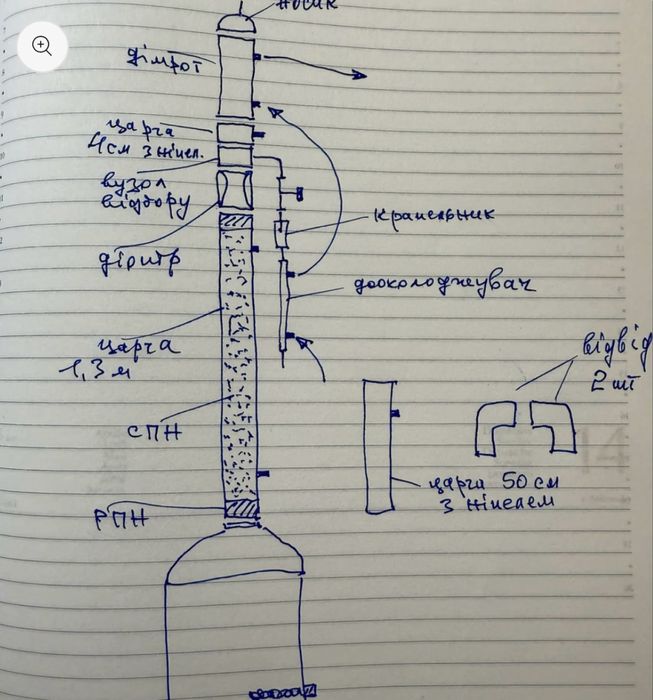 носик
дімрот
царга
4см з ніпел.
вузол
відбору
діоптр
царга
1,3 м
СПН
РПН
крапельник
доохолоджувач
відвід
2 шт
царга 50 см
з ніпелем